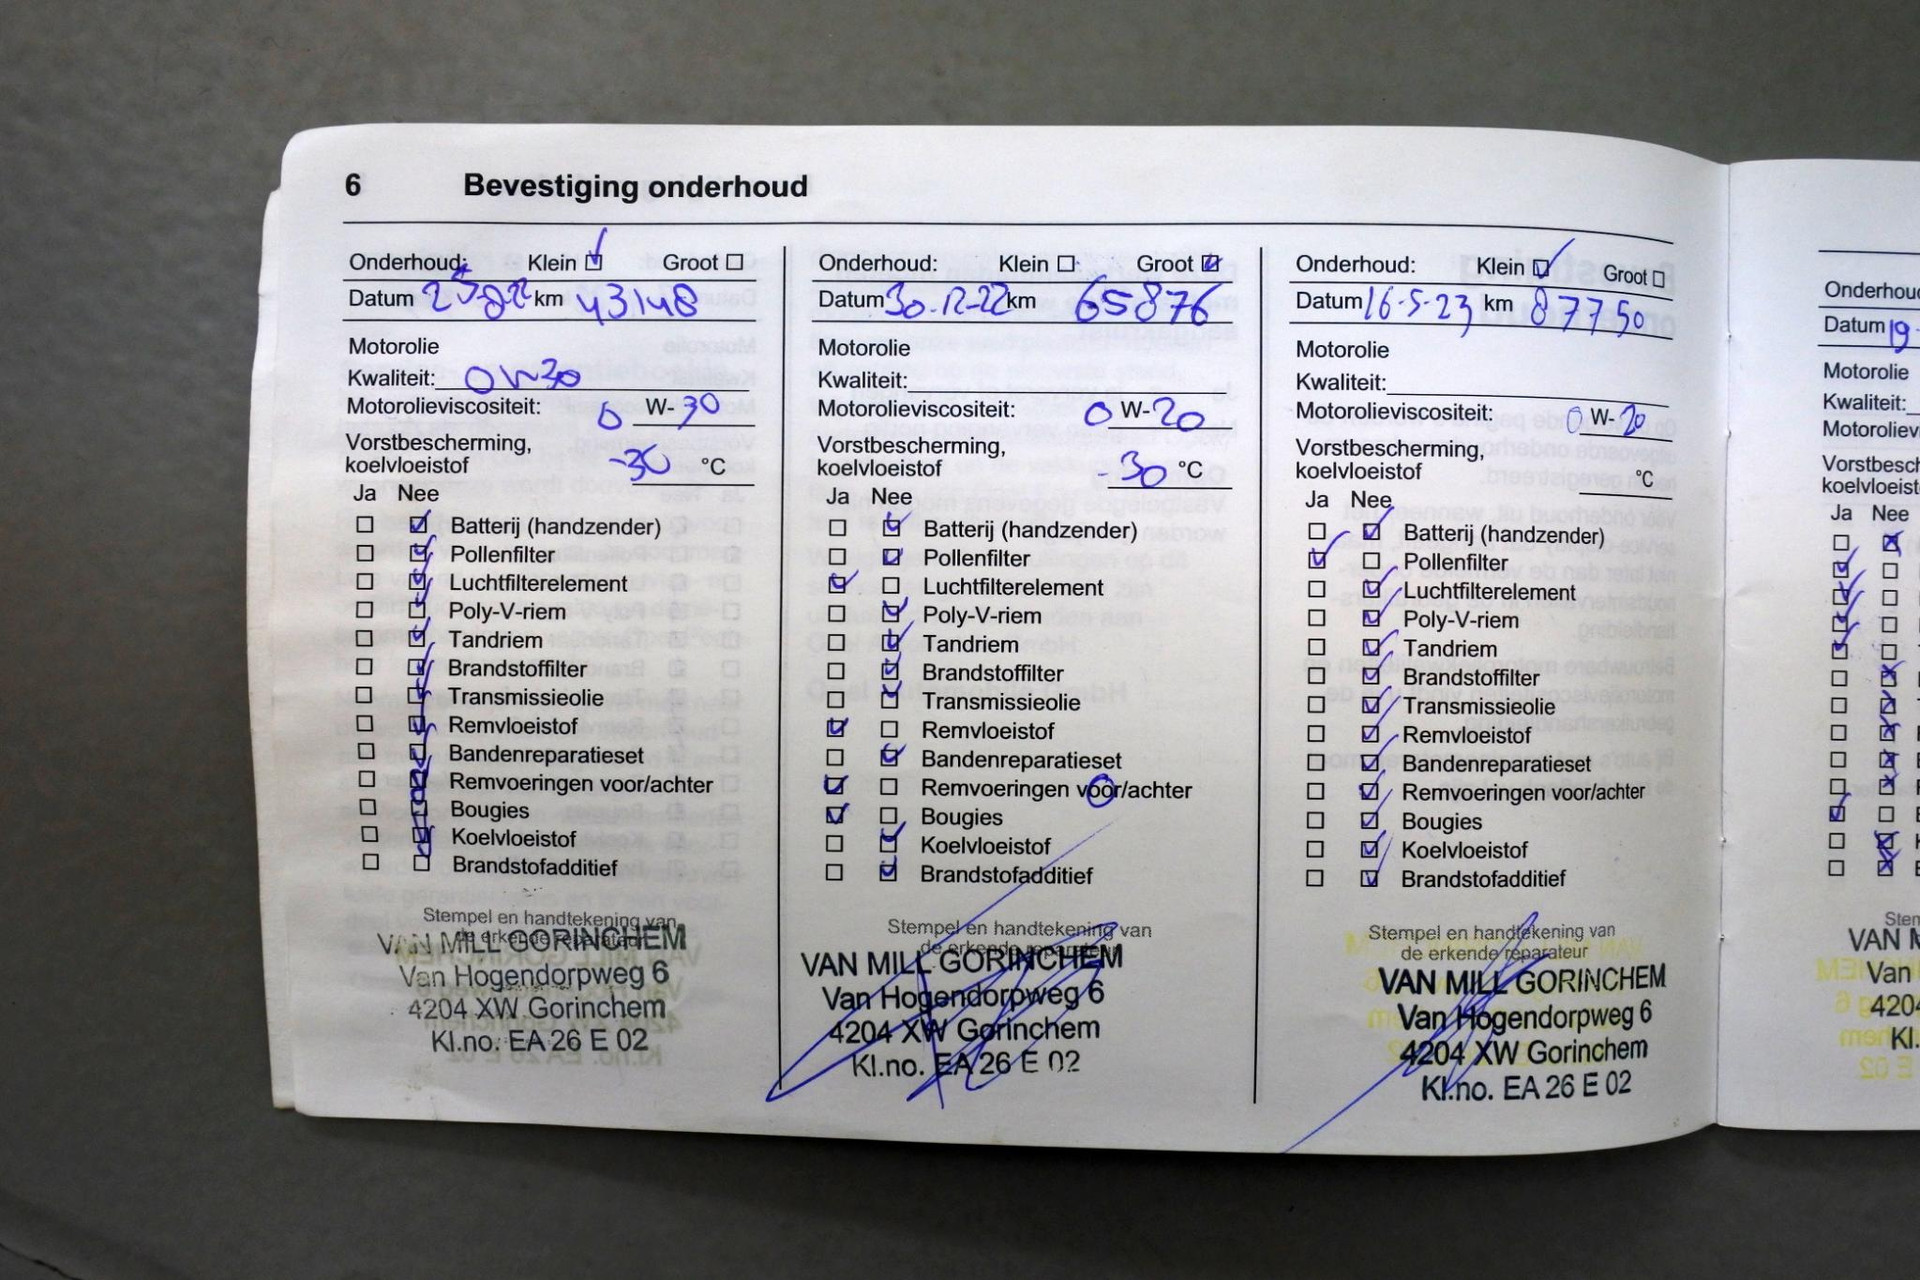 6 Bevestiging onderhoud
Onderhoud: Klein ☑ Groot ☐
Datum km 43148
Motorolie
Kwaliteit: 0W30
Motorolieviscositeit: 0 W-30
Vorstbescherming,
koelvloeistof -30 °C
Ja Nee
☐ ☑ Batterij (handzender)
☐ ☑ Pollenfilter
☐ ☑ Luchtfilterelement
☐ ☑ Poly-V-riem
☐ ☑ Tandriem
☐ ☑ Brandstoffilter
☐ ☑ Transmissieolie
☐ ☑ Remvloeistof
☐ ☑ Bandenreparatieset
☐ ☑ Remvoeringen voor/achter
☐ ☑ Bougies
☐ ☑ Koelvloeistof
☐ ☐ Brandstofadditief
Stempel en handtekening van
de erkende reparateur
VAN MILL GORINCHEM
Van Hogendorpweg 6
4204 XW Gorinchem
Kl.no. EA 26 E 02
Onderhoud: Klein ☐ Groot ☑
Datum 30-12-22 km 65876
Motorolie
Kwaliteit:
Motorolieviscositeit: 0 W-20
Vorstbescherming,
koelvloeistof -30 °C
Ja Nee
☐ ☑ Batterij (handzender)
☐ ☑ Pollenfilter
☑ ☐ Luchtfilterelement
☐ ☑ Poly-V-riem
☐ ☑ Tandriem
☐ ☑ Brandstoffilter
☐ ☑ Transmissieolie
☑ ☐ Remvloeistof
☐ ☑ Bandenreparatieset
☑ ☐ Remvoeringen voor/achter
☑ ☐ Bougies
☐ ☑ Koelvloeistof
☐ ☑ Brandstofadditief
Stempel en handtekening van
de erkende reparateur
VAN MILL GORINCHEM
Van Hogendorpweg 6
4204 XW Gorinchem
Kl.no. EA 26 E 02
Onderhoud: Klein ☑ Groot ☐
Datum 16-5-23 km 87750
Motorolie
Kwaliteit:
Motorolieviscositeit: 0 W-20
Vorstbescherming,
koelvloeistof °C
Ja Nee
☐ ☑ Batterij (handzender)
☑ ☐ Pollenfilter
☐ ☑ Luchtfilterelement
☐ ☑ Poly-V-riem
☐ ☑ Tandriem
☐ ☑ Brandstoffilter
☐ ☑ Transmissieolie
☐ ☑ Remvloeistof
☐ ☑ Bandenreparatieset
☐ ☑ Remvoeringen voor/achter
☐ ☑ Bougies
☐ ☑ Koelvloeistof
☐ ☑ Brandstofadditief
Stempel en handtekening van
de erkende reparateur
VAN MILL GORINCHEM
Van Hogendorpweg 6
4204 XW Gorinchem
Kl.no. EA 26 E 02
Datum 19
Motorolie
Kwaliteit:
Ja Nee
VAN
Van
Kl.